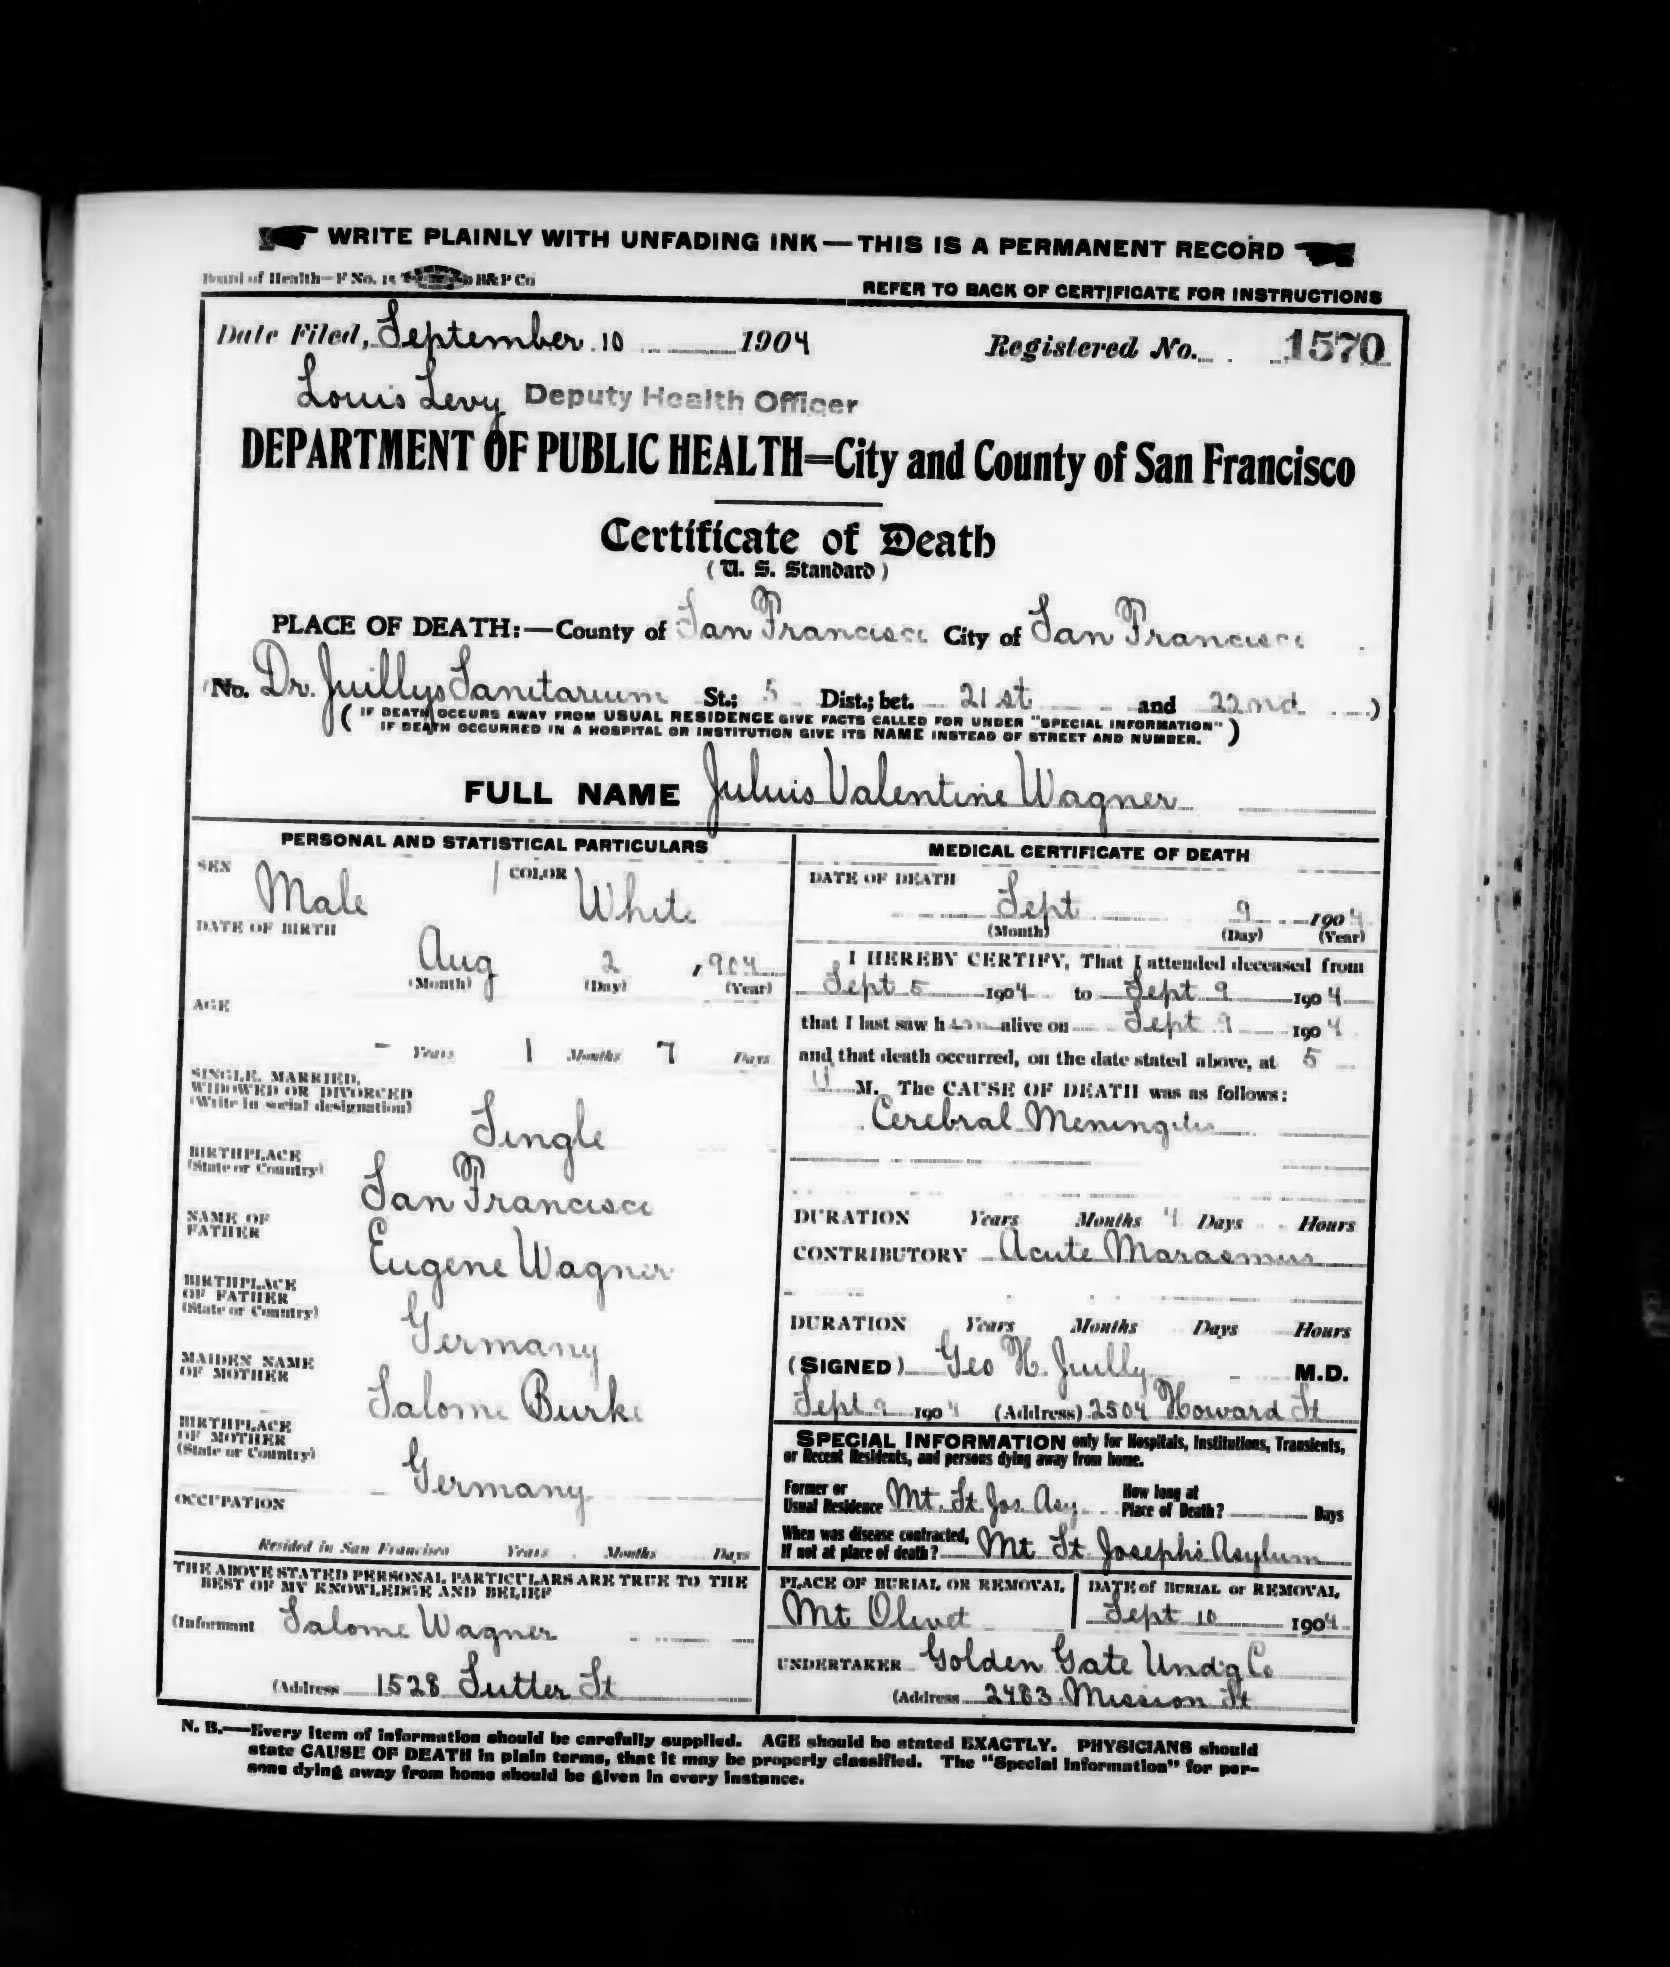 WRITE PLAINLY WITH UNFADING INK—THIS IS A PERMANENT RECORD
Board of Health—F No. 15 B&P Co
REFER TO BACK OF CERTIFICATE FOR INSTRUCTIONS
Date Filed, September 10 1904 Registered No. 1570
Louis Levy Deputy Health Officer
DEPARTMENT OF PUBLIC HEALTH=City and County of San Francisco
Certificate of Death
(U. S. Standard)
PLACE OF DEATH:—County of San Francisco City of San Francisco
(No. Dr. Juillys Sanitarium St.; 5 Dist.; bet. 21st and 22nd )
( IF DEATH OCCURS AWAY FROM USUAL RESIDENCE GIVE FACTS CALLED FOR UNDER "SPECIAL INFORMATION"
IF DEATH OCCURRED IN A HOSPITAL OR INSTITUTION GIVE ITS NAME INSTEAD OF STREET AND NUMBER. )
FULL NAME Juluis Valentine Wagner
PERSONAL AND STATISTICAL PARTICULARS
SEX Male COLOR White
DATE OF BIRTH
Aug 2 , 904
(Month) (Day) (Year)
AGE
- Years 1 Months 7 Days
SINGLE, MARRIED,
WIDOWED OR DIVORCED
(Write in social designation)
Single
BIRTHPLACE
(State or Country)
San Francisco
NAME OF
FATHER
Eugene Wagner
BIRTHPLACE
OF FATHER
(State or Country)
Germany
MAIDEN NAME
OF MOTHER
Salome Burke
BIRTHPLACE
OF MOTHER
(State or Country)
Germany
OCCUPATION
Resided in San Francisco Years Months Days
THE ABOVE STATED PERSONAL PARTICULARS ARE TRUE TO THE
BEST OF MY KNOWLEDGE AND BELIEF
(Informant Salome Wagner
(Address 1528 Sutter St
MEDICAL CERTIFICATE OF DEATH
DATE OF DEATH
Sept 9 1904
(Month) (Day) (Year)
I HEREBY CERTIFY, That I attended deceased from
Sept 5 1904 to Sept 9 1904
that I last saw h im alive on Sept 9 1904
and that death occurred, on the date stated above, at 5
M. The CAUSE OF DEATH was as follows:
Cerebral Meningitis
DURATION Years Months 4 Days Hours
CONTRIBUTORY Acute Marasmus
DURATION Years Months Days Hours
(SIGNED) Geo H. Juilly M.D.
Sept 9 1904 (Address) 2504 Howard St
SPECIAL INFORMATION only for Hospitals, Institutions, Transients,
or Recent Residents, and persons dying away from home.
Former or
Usual Residence Mt. St. Jos. Asy
How long at
Place of Death? Days
When was disease contracted,
If not at place of death? Mt St Joseph's Asylum
PLACE OF BURIAL OR REMOVAL
Mt Olivet
DATE of BURIAL or REMOVAL
Sept 10 1904
UNDERTAKER Golden Gate Undg Co
(Address 2483 Mission St
N. B.—Every item of information should be carefully supplied. AGE should be stated EXACTLY. PHYSICIANS should
state CAUSE OF DEATH in plain terms, that it may be properly classified. The "Special Information" for per-
sons dying away from home should be given in every instance.